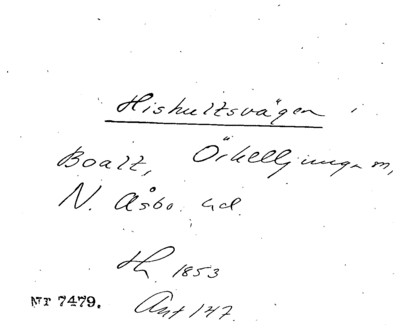 Hishultsvägen
Boalt, Örkelljunga sn,
N. Åsbo hd.
Th. 1853
Nr 7479.
Ant 147